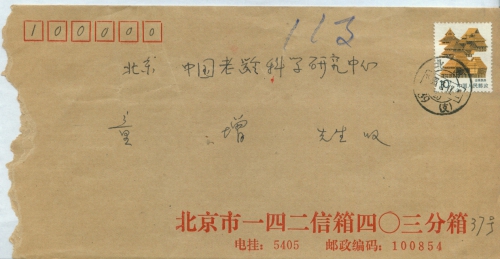 100000
113
北京 中国老龄科学研究中心
增 先生 收
北京市一四二信箱四〇三分箱 37号
电挂：5405 邮政编码：100854